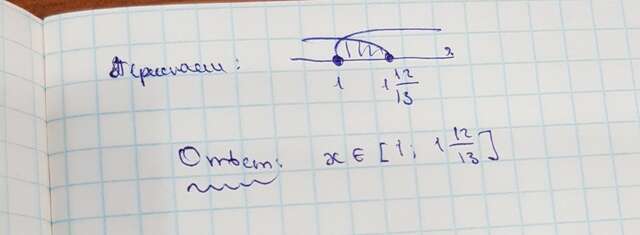 Пересекаем: x
1 1 12/13
Ответ: x ∈ [1; 1 12/13]